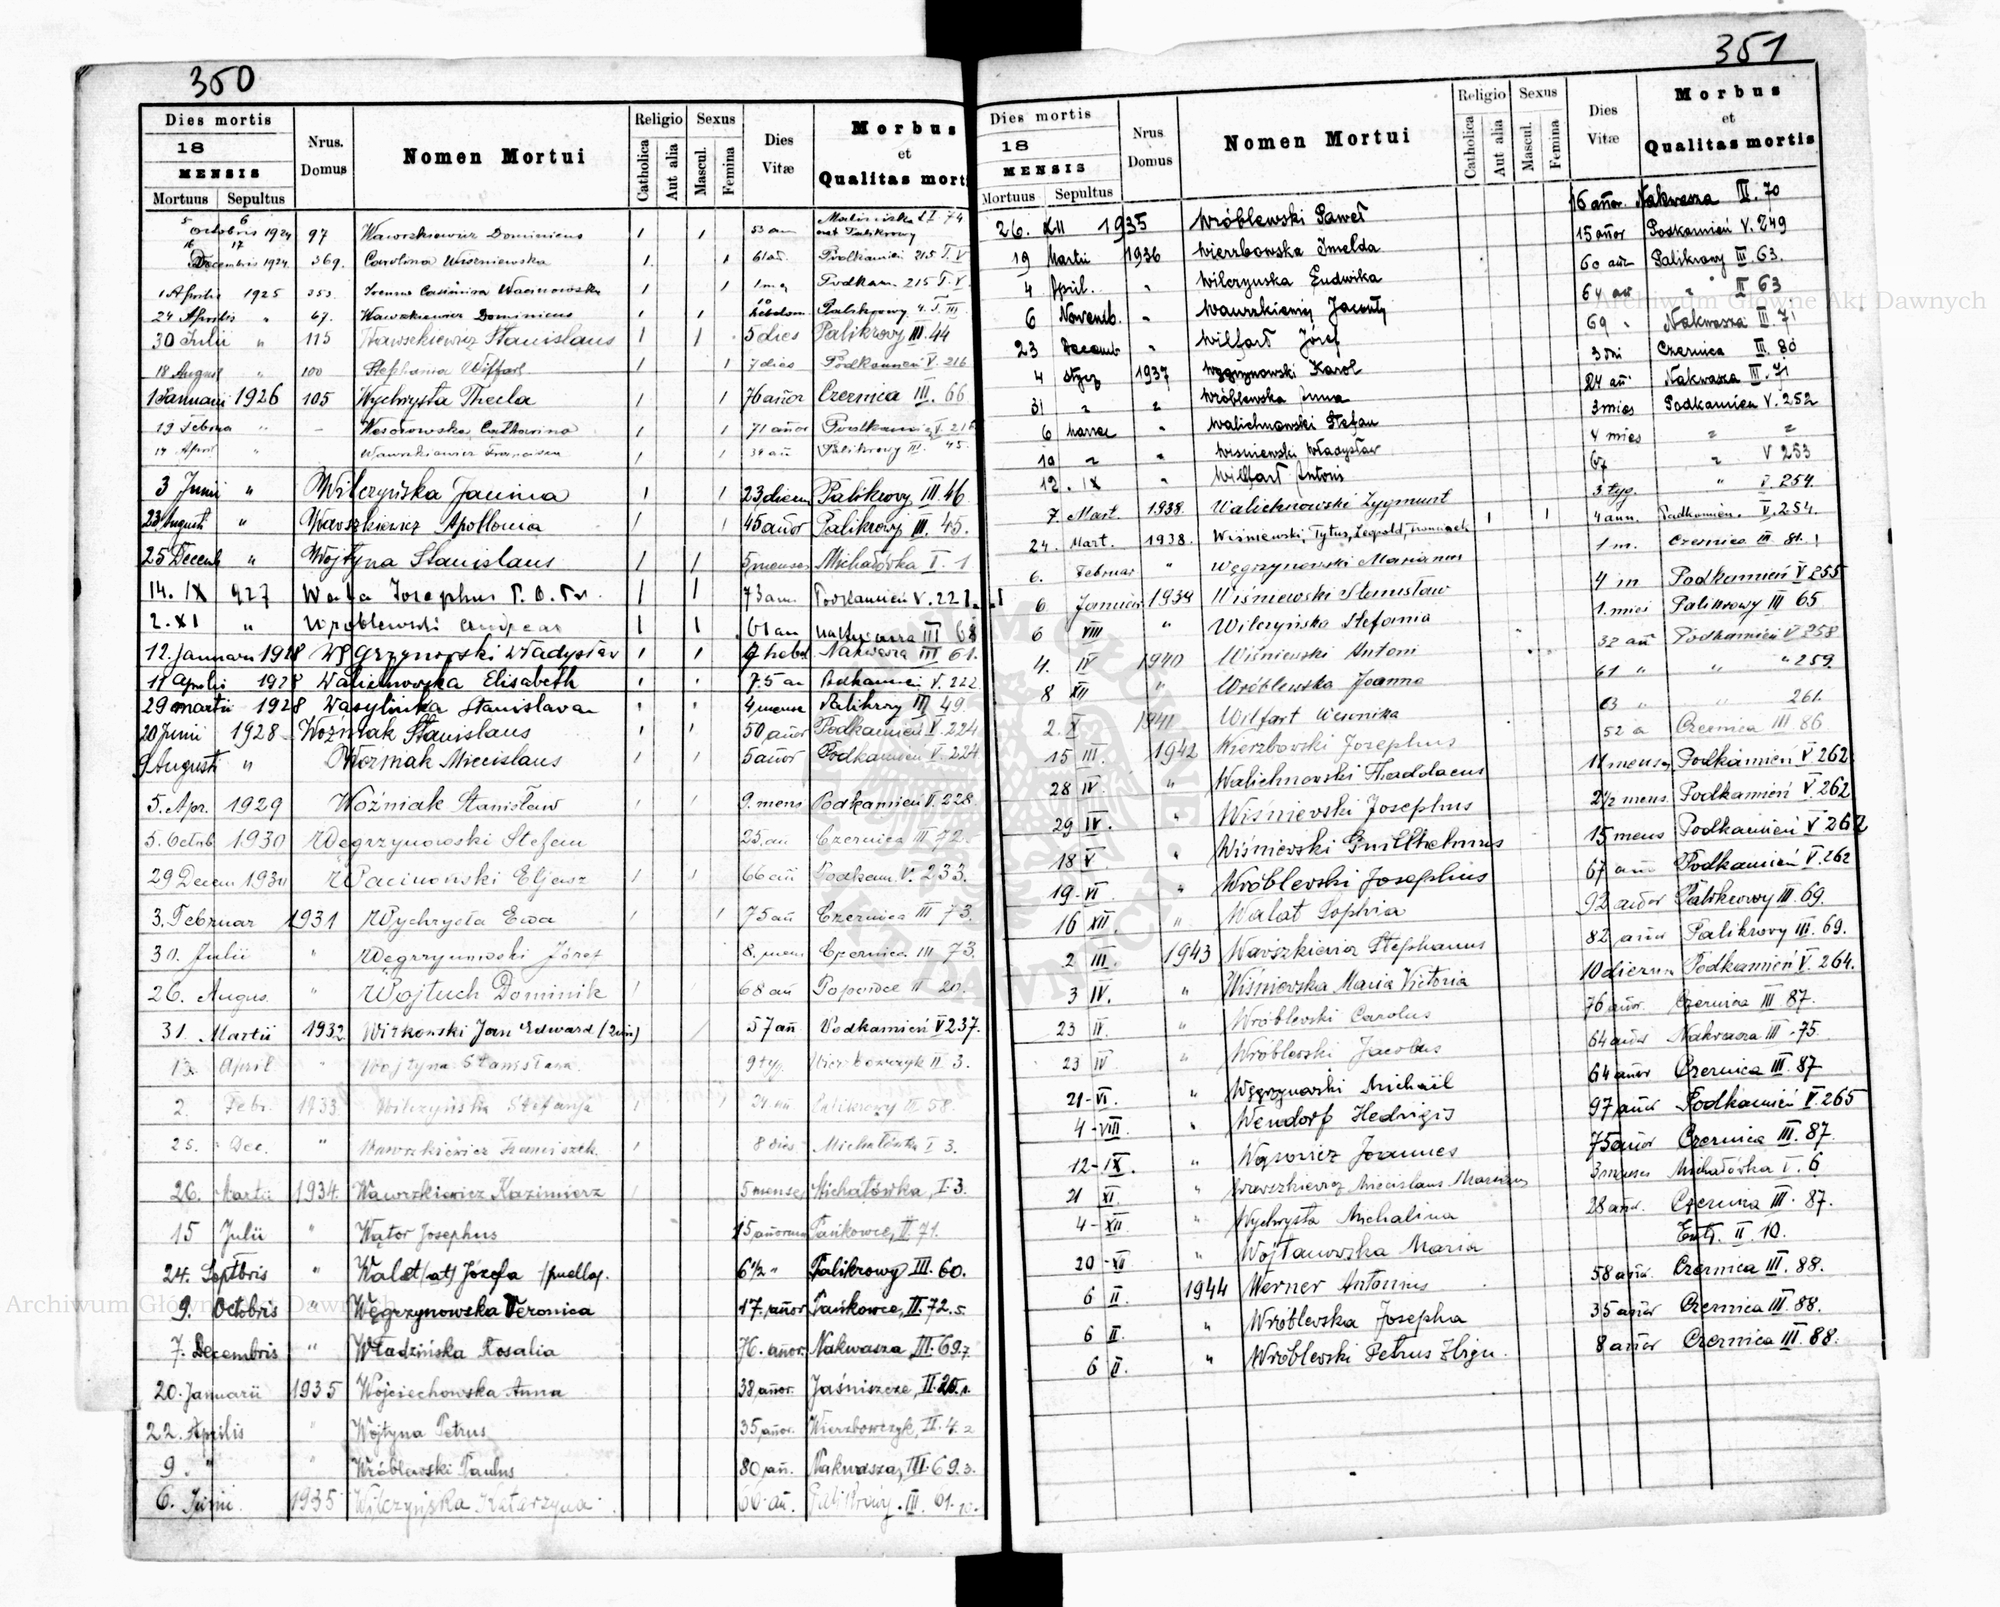 350
Dies mortis
18
MENSIS
Mortuus Sepultus
Nrus. Domus
Nomen Mortui
Religio
Catholica
Aut alia
Sexus
Mascul.
Femina
Dies Vitæ
Morbus
et
Qualitas mort
5 6
Octobris 1924 97 Wawrzkiewicz Dominicus 53 an Palikrowy
16 17
Decembris 1924 369. Carolina Wiszniewska Podkamień 215 T. V
1 Aprilis 1925 353. Casimira Podkam. 215 T. V.
24 Aprilis " 67. Wawrzkiewicz Dominicus Palikrowy 4. T. III
30 Julii " 115 Wawrzkiewicz Stanislaus 5 dies Palikrowy III. 44
18 August " 100 Stephania Wilfart 7 dies Podkamień V. 216
1 Januarii 1926 105 Wychrysta Thecla 76 añor Czernica III. 66
19 Februa " - Catharina 71 añor Podkamień V. 216
14 April " Wawrzkiewicz Franciscu 34 añ Palikrowy III. 45.
3 Junii " Wilczyńska Janina 23 dierum Palikrowy III. 46
23 Augusti " Wawszkiewicz Apollonia 45 añor Palikrowy III. 45.
25 Decemb " Wojtyna Stanislaus 5 menses Michałówka I. 1
14. IX 927 Josephus 73 ann. Podkamień V. 221.
2. XI " Wróblewski Andreas 61 an Nakwasza III 68
12. Januari 1928 Węgrzynowski Władysław 4 hebd Nakwasza III 61.
11 Aprilis 1928 Walichnowska Elisabeth 75 an Podkamień V. 222
29 martii 1928 Wasylinka Stanislava 4 mense Palikrowy III 49.
20 Junii 1928 Woźniak Stanislaus 50 añor Podkamień V. 224
9 Augusti " Woźniak Miecislaus 5 añor Podkamień V. 224
5. Apr. 1929 Woźniak Stanisław 9. mens Podkamień V. 228
5. Octob 1930 Węgrzynowski Stefan 25. an Czernica III 72.
29 Decem 1930 Wacinoński Eljasz 66 añ Podkam. V. 233.
3. Februar 1931 Wychrysta Ewa 75 añ Czernica III 73.
30. Julii " Węgrzynowski Józef 8. mens Czernica III. 73.
26. Augus. " Wojtuch Dominik 68 añ Popowce II 20.
31. Martii 1932 Witkowski Jan Edward 57 añ. Podkamień V 237.
13 April " Wojtyna Stanisława 9 tyg. Wierzbowczyk II 3.
2. Febr. 1933 Wilczyńska Stefanja 24 añ Palikrowy III 58.
25. Dec. " Wawrzkiewicz Franciszek 8 dies Michałówka I 3.
26. Martii 1934. Wawrzkiewicz Kazimierz 5 menses Michałówka, I. 3.
15 Julii " Wątor Josephus 15 añorum Pańkowce, II 71.
24. Septbris " Walet/at/ Józefa /puella/. 6 1/2 " Palikrowy III. 60.
9. Octobris " Węgrzynowska Veronica 17. añor Pańkowce, II. 72. 5.
7. Decembris " Władzińska Rosalia 76. añor. Nakwasza III. 69. 7.
20. Januarii 1935 Wojciechowska Anna 38 añor. Jaśniszcze, II. 20. 1.
22. Aprilis " Wojtyna Petrus 35 añor. Wierzbowczyk, II. 4. 2
9. " " Wróblewski Paulus 80 añ. Nakwasza, III. 69. 3.
6. Junii 1935 Wilczyńska Katarzyna 66 añ. Palikrowy. III. 61. 10.
351
Dies mortis
18
MENSIS
Mortuus Sepultus
Nrus. Domus
Nomen Mortui
Religio
Catholica
Aut alia
Sexus
Mascul.
Femina
Dies Vitæ
Morbus
et
Qualitas mortis
26. XII 1935 Wróblewski Paweł 76 añor. Nakwasza III. 70
19 Martii 1936 Wierzbowska Imelda 15 añor Podkamień V. 249
4 April. " Wilczyńska Ludwika 60 añr Palikrowy III. 63.
6 Novemb. " Wawrzkiewicz Jacenty 64 añ " III 63
23 Decemb " Wilfart Józef 69 " Nakwasza III. 71
4 stycz 1937 Węgrzynowski Karol 3 dni Czernica III. 80
31 " " Wróblewska Anna 24 añ. Nakwasza III. 71
6 marca " Walichnowski Stefan 3 mies Podkamień V. 252
19 " " Wiśniewski Władysław 4 mies " "
12. IX " Wilfart Antoni 67 " V 253
7. Mart. 1938. Walichnowski Zygmunt 3 tyg. " V. 254.
24. Mart. 1938. Wiśniewski, Tytus, Leopold, Franciszek 4 ann. Podkamień. V. 254.
6. Februar " Węgrzynowski Marianus 1 m. Czernica III. 81.
6 Januar 1939 Wiśniewski Stanisław 4 m Podkamień V 255
6 VIII " Wilczyńska Stefania 1. mies Palikrowy III 65
4. IV 1940 Wiśniewski Antoni 32 añ Podkamień V 258
8 XII " Wróblewska Joanna 61 " " " 259
2. X 1941 Wilfart Weronika 63 " " 261.
15 III. 1942 Wierzbowski Josephus 52 a Czernica III 86
28 IV. " Walichnowski Thaddaeus 11 menses Podkamień V 262
29 IV. " Wiśniewski Josephus 2 1/2 mens. Podkamień V. 262
18 V " Wiśniewski Guilhelmus 15 mens Podkamień V 262
19 - VI " Wróblewski Josephus 67 ann Podkamień V. 262
16 XII. " Walat Sophia 92 añor Palikrowy III. 69.
2 III. 1943 Wawszkiewicz Stephanus 82 añor Palikrowy III. 69.
3 IV. " Wiśniewska Maria Victoria 10 dierum Podkamień V. 264.
23 IV. " Wróblewski Carolus 76 añor. Czernica III 87.
23 IV " Wróblewski Jacobus 64 añor Nakwasza III - 75
21 - VI. " Węgrzynowski Michaël 64 añor Czernica III. 87
4 - VIII. " Wendorf Hedvigis 97 añor Podkamień V. 265
12 - IX. " Wąsowicz Joannes 75 añor Czernica III. 87.
21 XI. " Wawszkiewicz Miecislaus Marian 3 menses Michałówka I. 6
4 - XII " Wychrysta Michalina 28 añor. Czernica III. 87.
20 - XII " Wojtanowska Maria II. 10.
6 II. 1944 Werner Antonius 58 añor. Czernica III. 88.
6 II. " Wróblewska Josepha 35 añor Czernica III. 88.
6 II. " Wróblewski Petrus 8 añor Czernica III. 88.
Archiwum Główne Akt Dawnych
Archiwum Główne Akt Dawnych